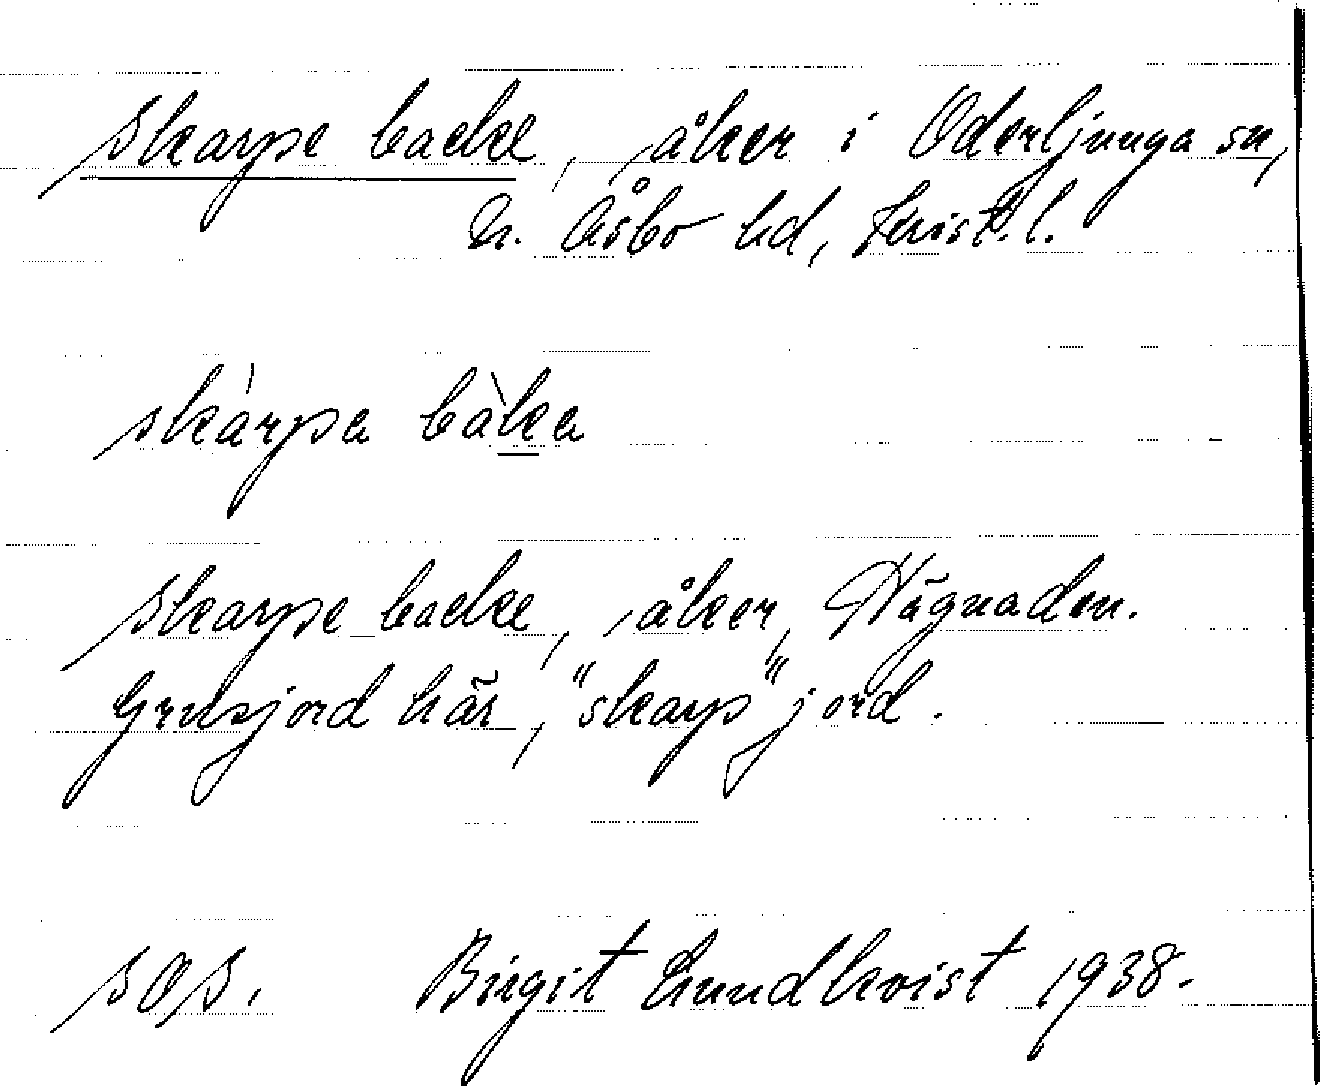 Skarpe backe, åker i Oderljunga sn,
N. Åsbo hd, Krist. l.
skárpa bàka
Skarpe backe, åker, Hägnaden.
Grusjord här, "skarp" jord.
SOS. Birgit Lundkvist 1938.